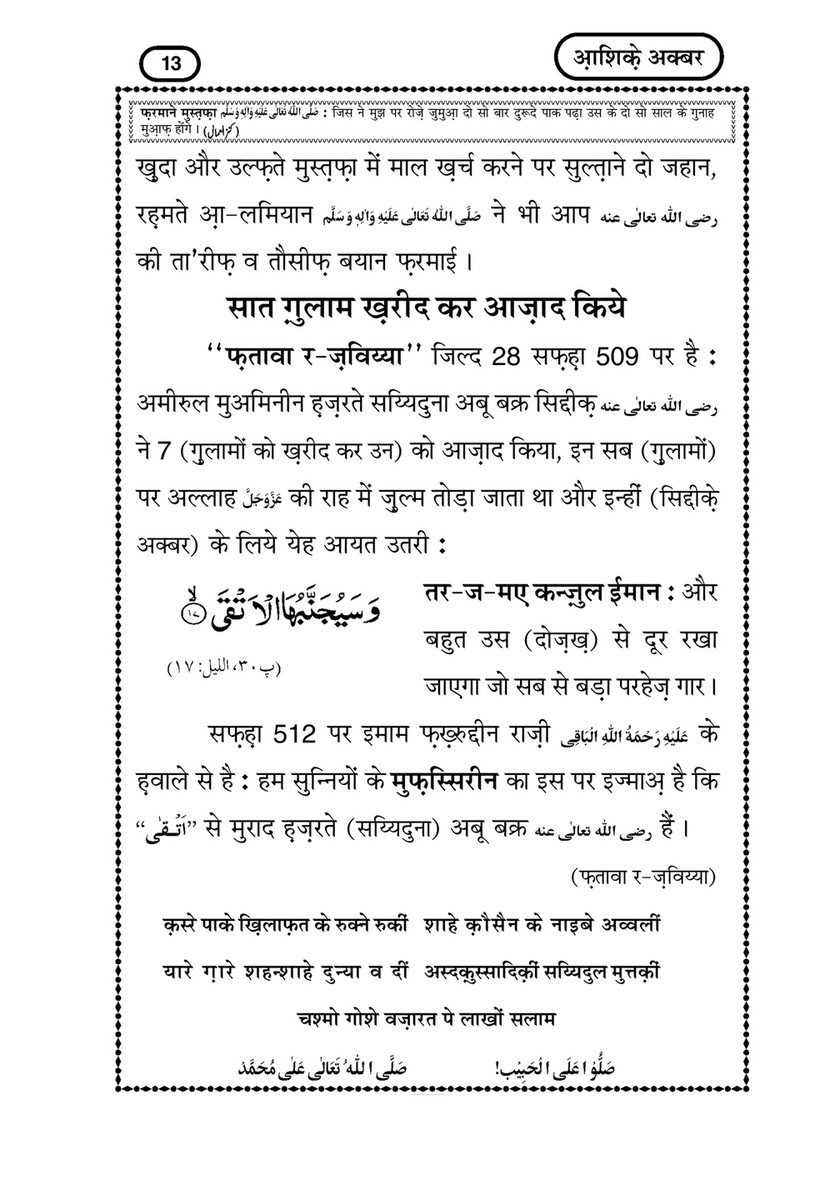 13
आ़शिके़ अक्बर
फ़रमाने मुस्त़फ़ा صَلَّى اللهُ تَعَالٰى عَلَيْهِ وَاٰلِهٖ وَسَلَّم : जिस ने मुझ पर रोज़े जुमुआ़ दो सो बार दुरूदे पाक पढ़ा उस के दो सो साल के गुनाह
मुआ़फ़ होंगे । (کنزالعمال)
ख़ुदा और उल्फ़ते मुस्त़फ़ा में माल ख़र्च करने पर सुल्त़ाने दो जहान,
रह़मते आ़-लमियान صَلَّى اللهُ تَعَالٰى عَلَيْهِ وَاٰلِهٖ وَسَلَّم ने भी आप رضى الله تعالٰى عنه
की ता'रीफ़ व तौसीफ़ बयान फ़रमाई ।
सात ग़ुलाम ख़रीद कर आज़ाद किये
‘‘फ़तावा र-ज़विय्या’’ जिल्द 28 सफ़ह़ा 509 पर है :
अमीरुल मुअमिनीन ह़ज़रते सय्यिदुना अबू बक्र सिद्दीक़ رضى الله تعالٰى عنه
ने 7 (ग़ुलामों को ख़रीद कर उन) को आज़ाद किया, इन सब (ग़ुलामों)
पर अल्लाह عَزَّوَجَلَّ की राह में ज़ुल्म तोड़ा जाता था और इन्हीं (सिद्दीक़े
अक्बर) के लिये येह आयत उतरी :
وَسَيُجَنَّبُهَا الْاَتْقَىۙ ﴿۱۷﴾
(پ۳۰، الليل: ۱۷)
तर-ज-मए कन्ज़ुल ईमान : और
बहुत उस (दोज़ख़) से दूर रखा
जाएगा जो सब से बड़ा परहेज़ गार ।
सफ़ह़ा 512 पर इमाम फ़ख़्रुद्दीन राज़ी عَلَيْهِ رَحْمَةُ اللهِ الْبَاقِى के
ह़वाले से है : हम सुन्नियों के मुफ़स्सिरीन का इस पर इज्माअ़ है कि
“اَتْقٰى” से मुराद ह़ज़रते (सय्यिदुना) अबू बक्र رضى الله تعالٰى عنه हैं ।
(फ़तावा र-ज़विय्या)
क़स्रे पाके ख़िलाफ़त के रुक्ने रुकीं शाहे क़ौसैन के नाइबे अव्वलीं
यारे ग़ारे शहन्शाहे दुन्या व दीं अस्दक़ुस्सादिक़ीं सय्यिदुल मुत्तक़ीं
चश्मो गोशे वज़ारत पे लाखों सलाम
صَلُّوْا عَلَى الْحَبِيْب! صَلَّى اللهُ تَعَالٰى عَلٰى مُحَمَّد